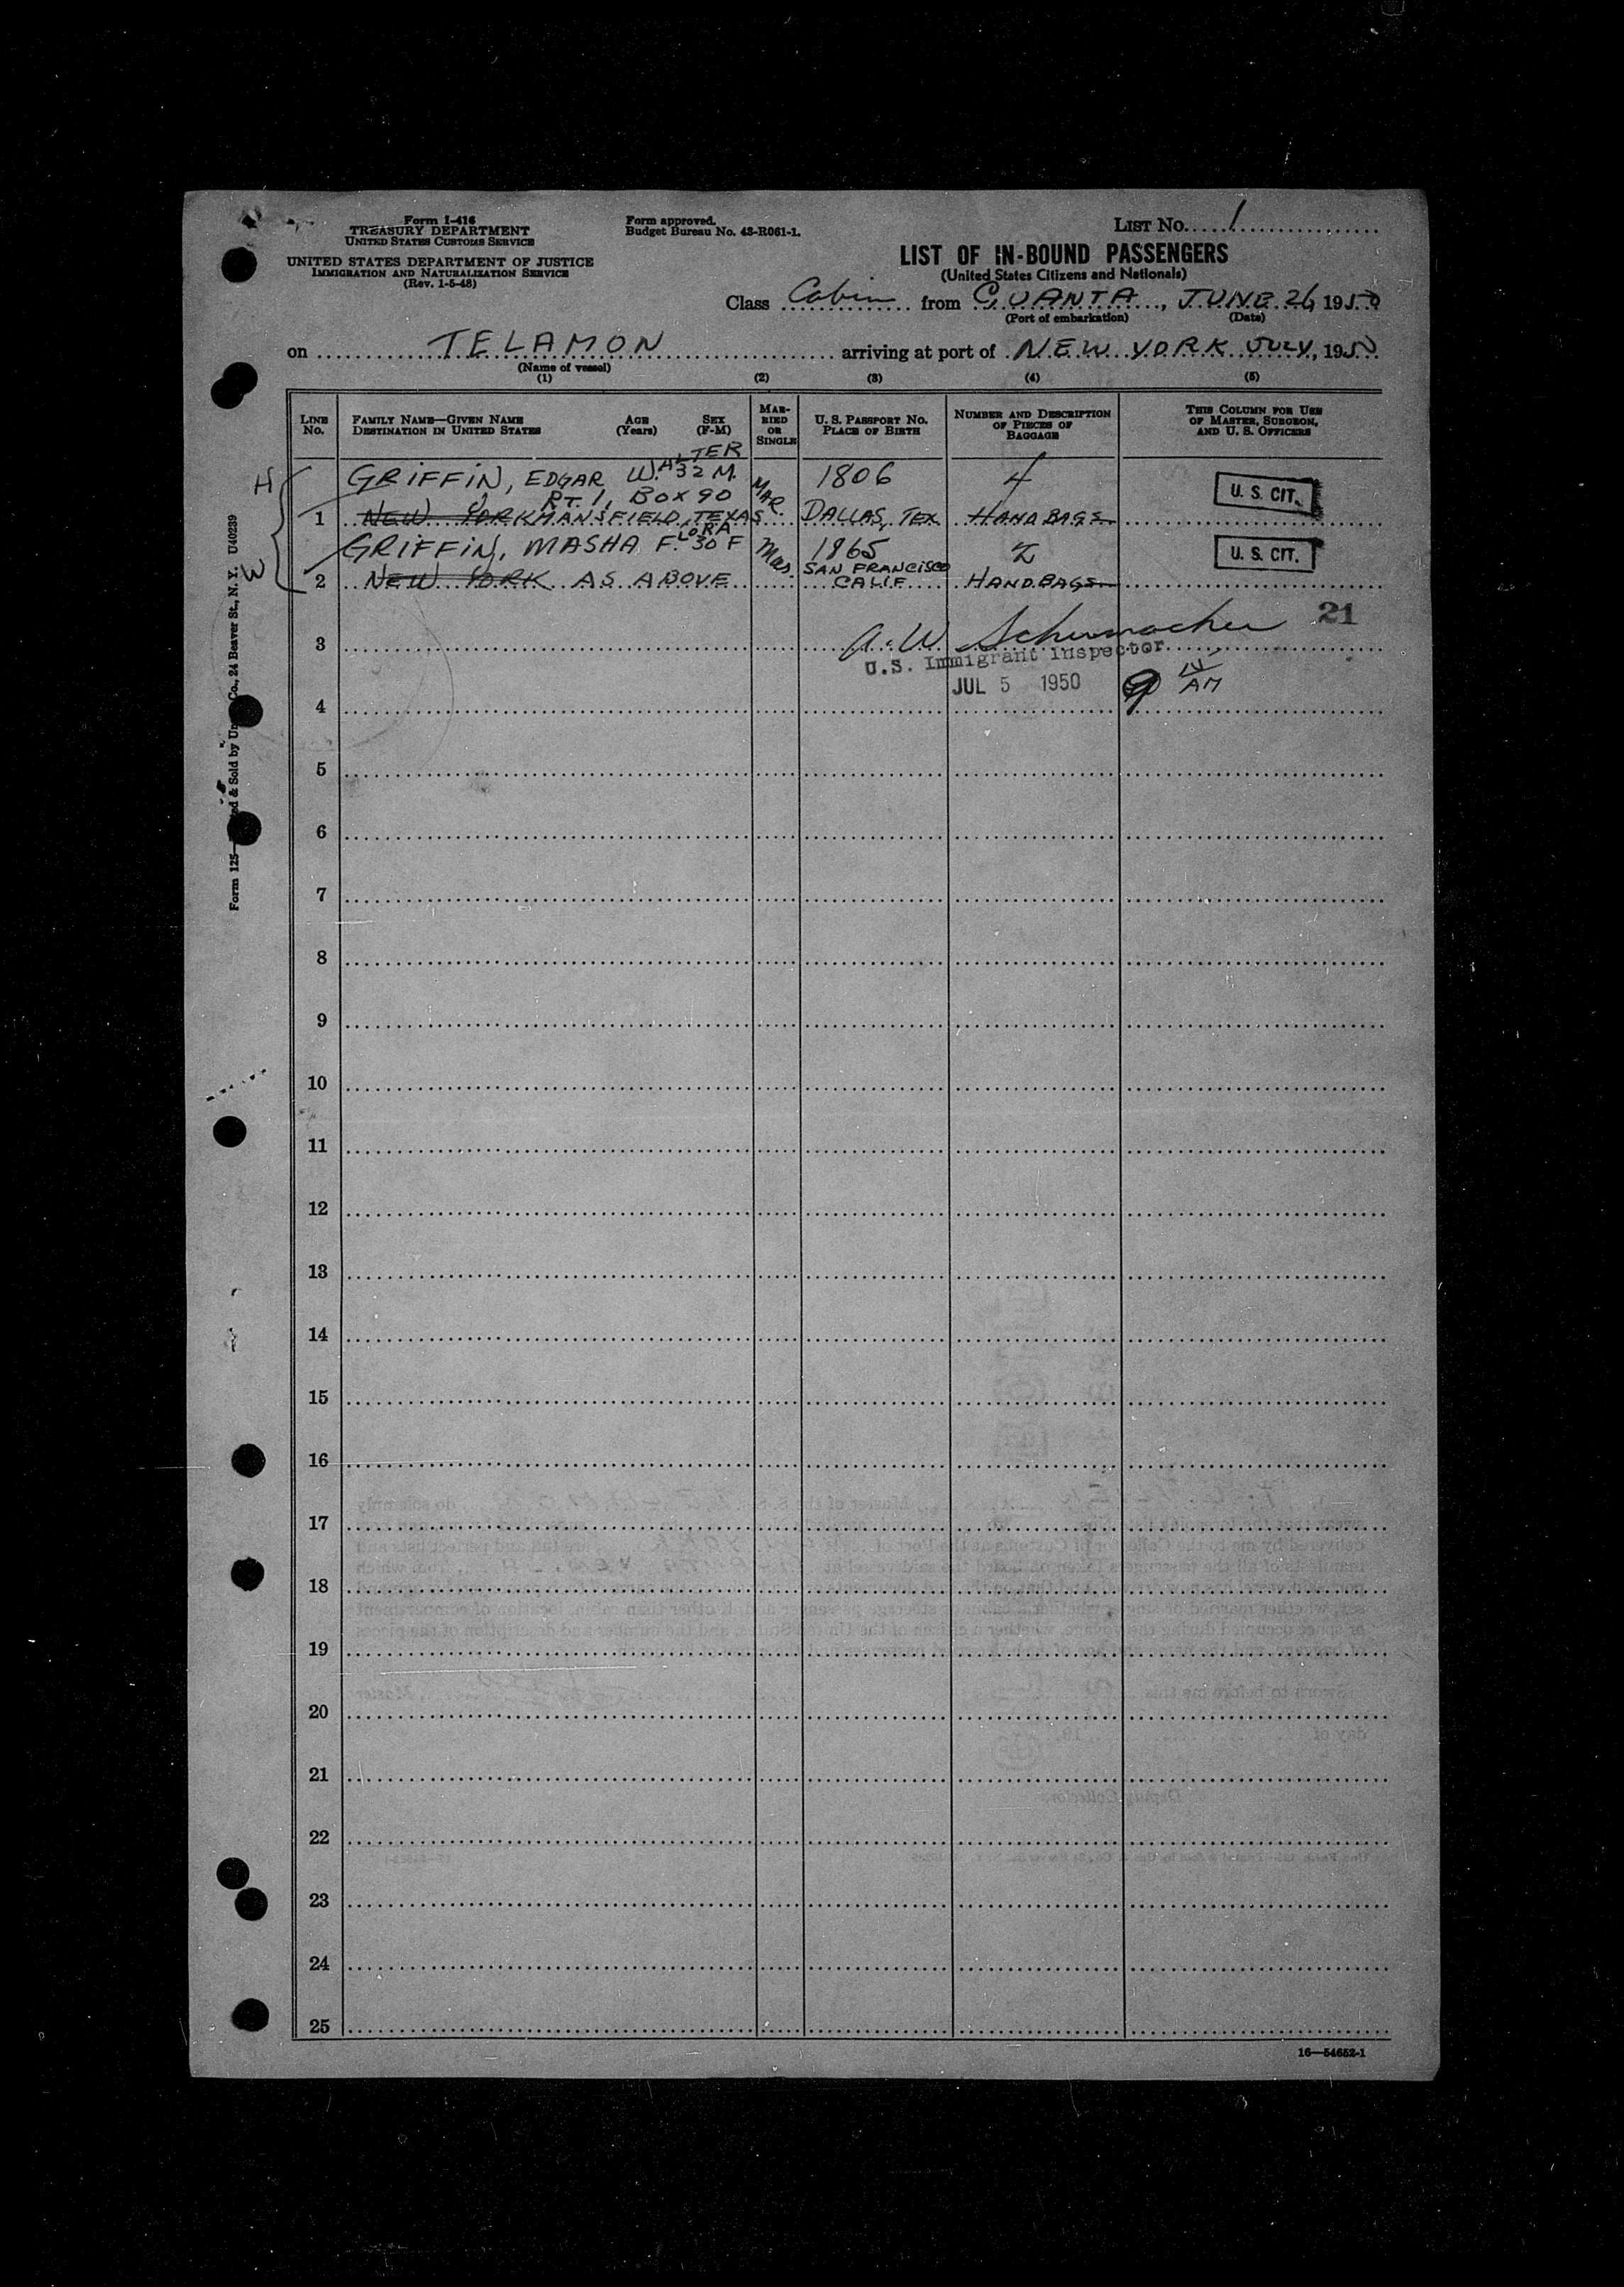 Form I-416
TREASURY DEPARTMENT
UNITED STATES CUSTOMS SERVICE
UNITED STATES DEPARTMENT OF JUSTICE
IMMIGRATION AND NATURALIZATION SERVICE
(Rev. 1-5-48)
Form approved.
Budget Bureau No. 43-R061-1.
LIST No. 1
LIST OF IN-BOUND PASSENGERS
(United States Citizens and Nationals)
Class Cabin from GUANTA, JUNE 26, 1950
(Port of embarkation) (Date)
on TELAMON arriving at port of NEW YORK JULY, 1950
(Name of vessel)
(1) (2) (3) (4) (5)
LINE No. FAMILY NAME—GIVEN NAME DESTINATION IN UNITED STATES AGE (Years) SEX (F-M) MARRIED OR SINGLE U. S. PASSPORT No. PLACE OF BIRTH NUMBER AND DESCRIPTION OF PIECES OF BAGGAGE THIS COLUMN FOR USE OF MASTER, SURGEON, AND U. S. OFFICERS
H
GRIFFIN, EDGAR WALTER 32 M. MAR. 1806 4 U. S. CIT.
RT. 1, BOX 90
1 NEW YORK MANSFIELD, TEXAS DALLAS, TEX HAND BAGS
GRIFFIN, MASHA FLORA 30 F Mar. 1865 2 U. S. CIT.
W
2 NEW YORK AS ABOVE SAN FRANCISCO CALIF. HANDBAGS
21
3 A. W. Schumacher
U.S. Immigrant Inspector
JUL 5 1950 9 AM
4
5
6
7
8
9
10
11
12
13
14
15
16
17
18
19
20
21
22
23
24
25
16—54652-1
Form 125— ed & Sold by Un Co., 24 Beaver St., N. Y. U40239